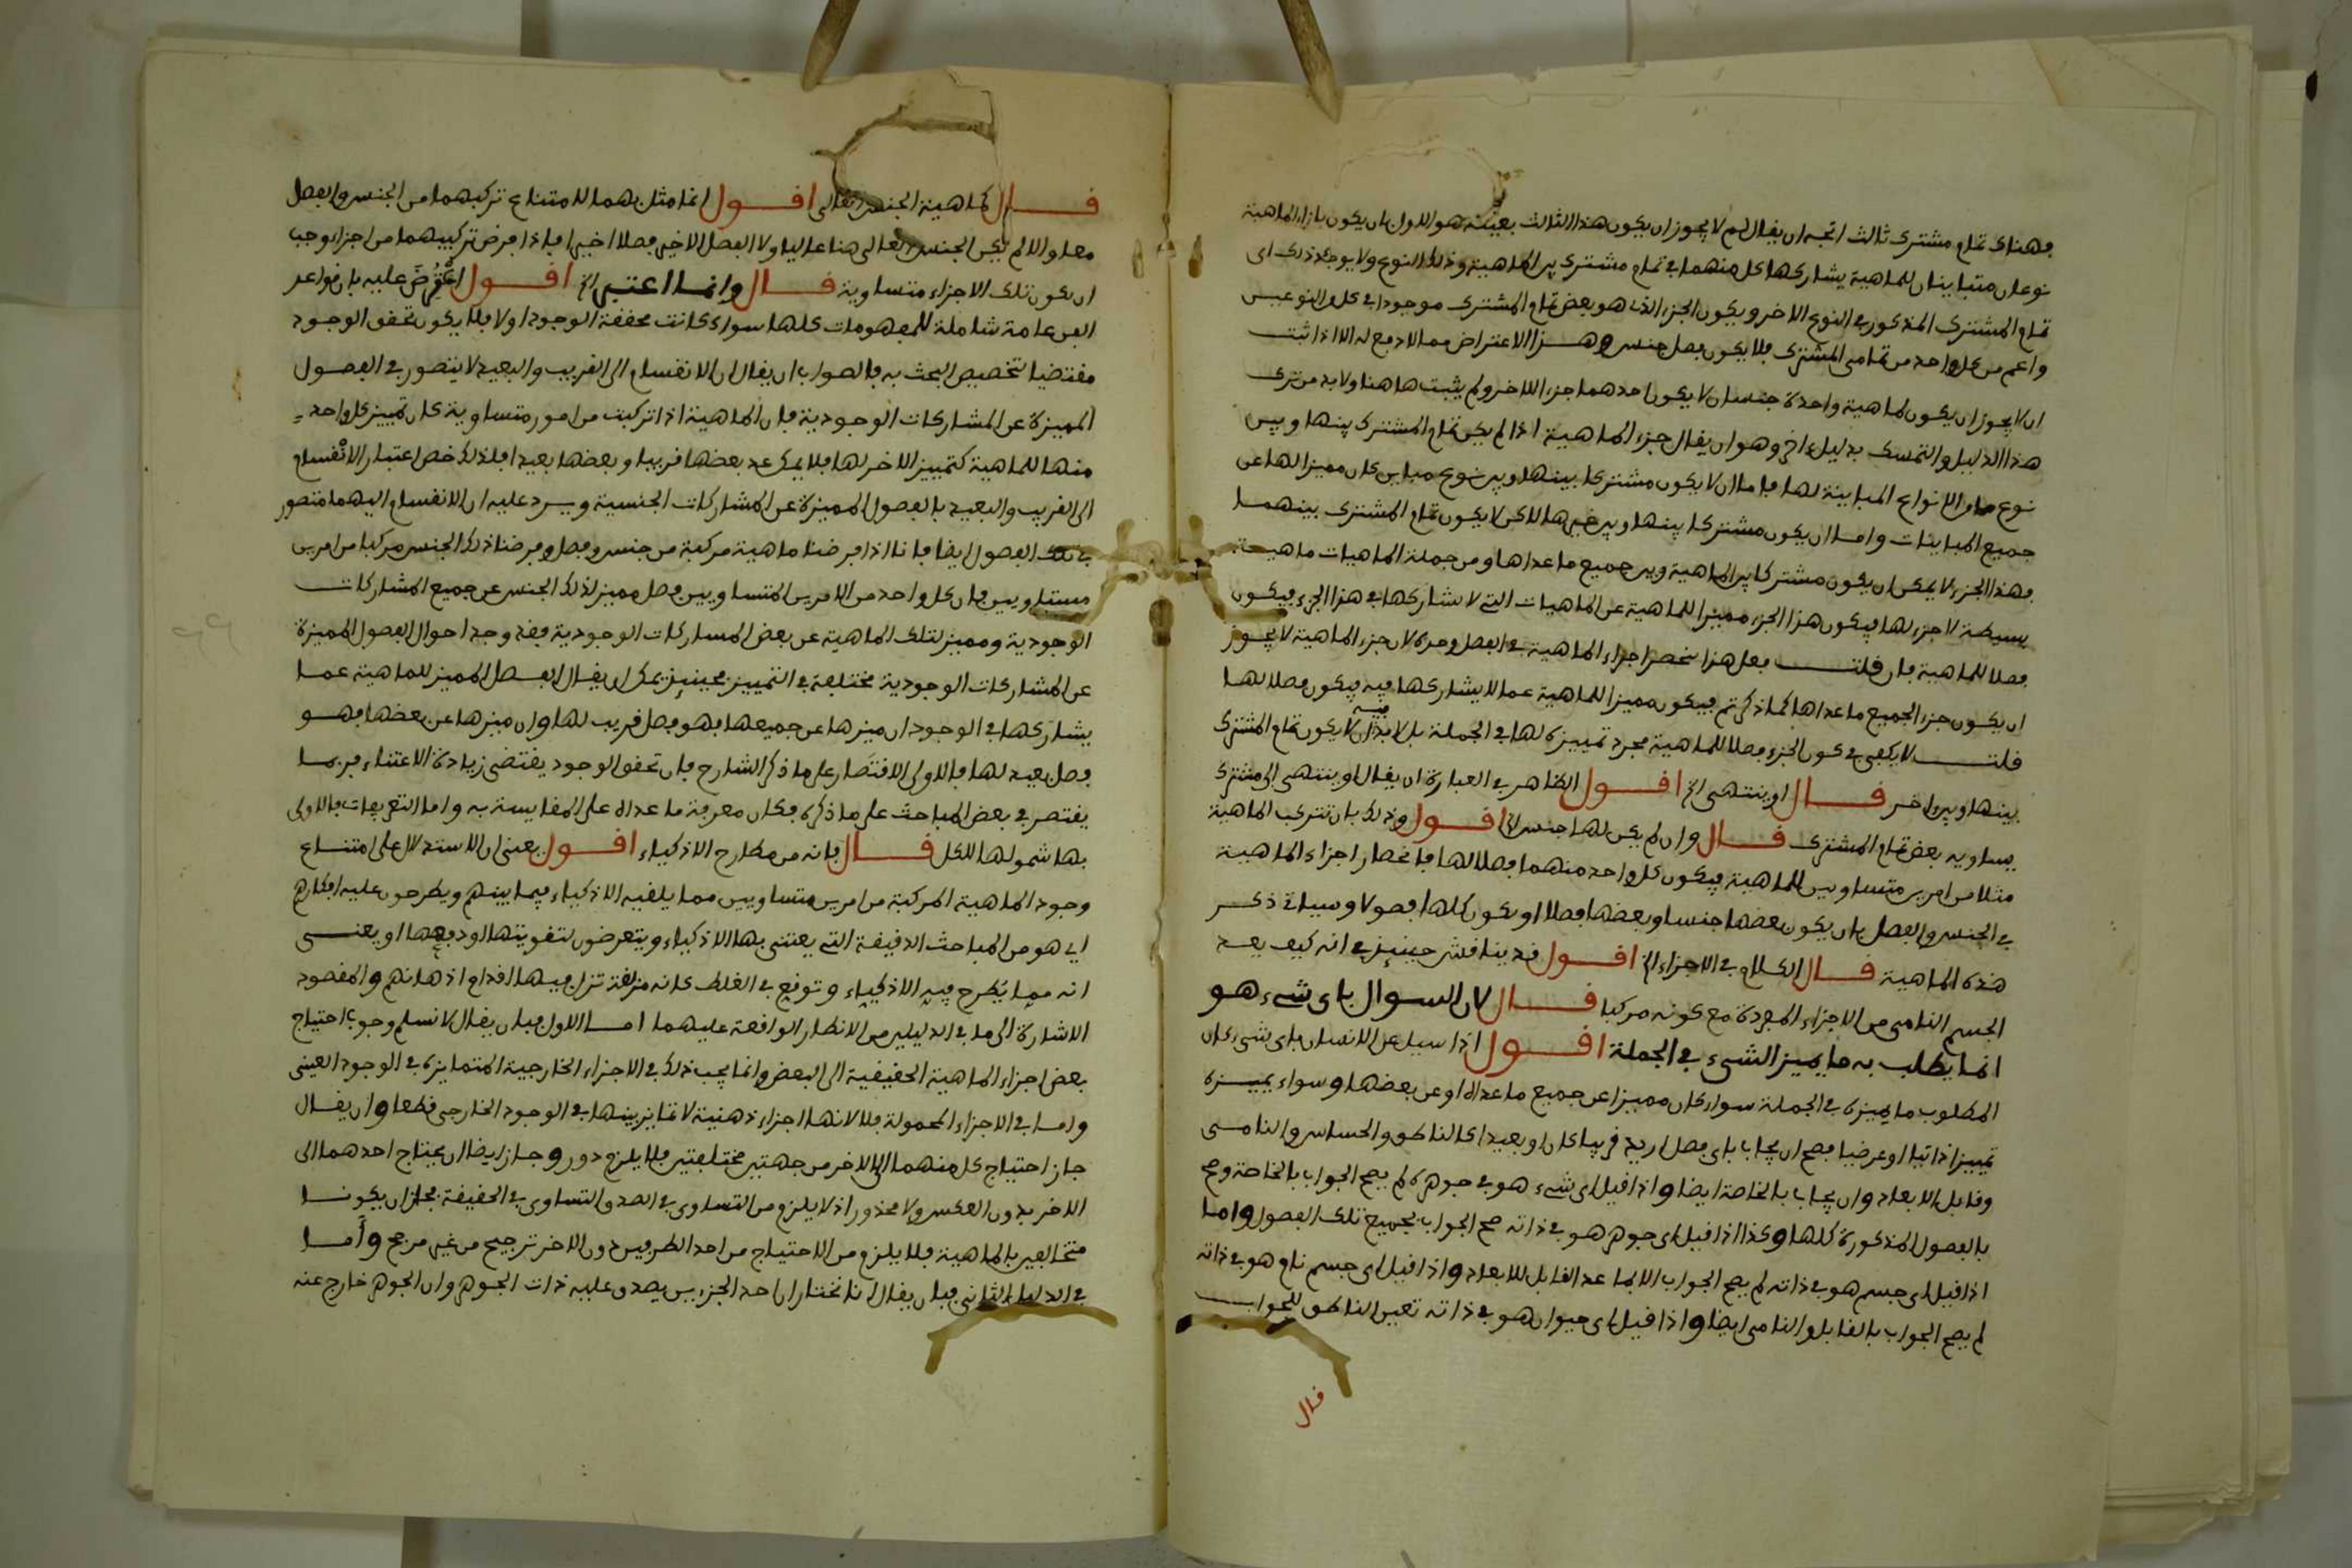 فهناك تمام مشترك ثالث اتجه ان يقال لم لا يجوز ان يكون هذا الثالث بعينه هو الاول بان يكون بازاء الماهية
نوعان متباينان للماهية يشاركها كل منهما في تمام مشترك بين الماهية وذلك النوع ولا يوجد ذلك اى
تمام المشترك المذكور في النوع الاخر ويكون الجزء الذى هو بعض تمام المشترك موجودا في كل والنوعيين
واعم من كل واحد من تمامى المشترك فلا يكون فصل جنس وهـذا الاعتراض مما لا دفع له الا اذا ثبت
ان لا يجوز ان يكون لماهية واحدة جنسان لا يكون احدهما جزء اللاخر ولم يثبت هاهنا ولا بد من ترك
هذا الدليل والتمسك بدليل ءاخر وهو ان يقال جزء الماهية اذا لم يكن تمام المشترك بينها وبين
نوع من الانواع المباينة لها فاما ان لا يكون مشتركا بينها وبين نوع مباين كان مميزا لها عن
جميع المباينات واما ان يكون مشتركا بينها وبين غيرها لاكن لا يكون تمام المشترك بينهما
فهذا الجزء لا يمكن ان يكون مشتركا بين الماهية وبين جميع ما عداها ومن جملة الماهيات ماهيـة
بسيطة لا جزء لها فيكون هذا الجزء مميزا للماهية عن الماهيات التي لا تشاركها في هذا الجزء فيكون
فصلا للماهية فان قلت فعل هذا نحصر اجزاء الماهية في الفصل وحده لان جزء الماهية لا يجوز
ان يكون جزء الجميع ما عداها كما ذكرتم فيكون مميزا للماهية عما لا يشاركها فيه فيكون فصلا لها
قلت لا يكفى في كون الجزء فصلا للماهية مجرد تمييزه لها في الجملة بل لا بد فيه ان لا يكون تمام المشترك
بينها وبين ءاخر قـال او ينتهى الخ اقـول الظاهر في العبارة ان يقال او ينتهى الى مشترك
يساويه بعض تمام المشترك قـال وان لم يكن لها جنس الخ اقـول وذلك بان تتركب الماهية
مثلا من امرين متساويين للماهية فيكون كل واحد منهما فصلا لها فانحصار اجزاء الماهية
في الجنس والفصل بان يكون بعضها جنسا وبعضها فصلا او يكون كلها فصولا وسياتى ذكـر
هذه الماهية قـال الكلام في الاجزاء الخ اقـول قد يناقش حينيذ في انه كيف يعـد
الجسم النامى من الاجزاء المفردة مع كونه مركبا قـال لان السوال باى شىء هو
انما يطلب به ما يميز الشىء في الجملة اقـول اذا سيل عن الانسان باى شىء كان
المطلوب ما يميزه في الجملة سواء كان مميزا عن جميع ما عداه او عن بعضها وسواء يميـزه
تمييزا ذاتيا او عرضيا فصح ان يجاب باى فصل اريد قريبا كان او بعيدا كالناطق والحساس والنامـى
وقابل الابعاد وان يجاب بالخاصة ايضا واذا قيل اى شىء هو في جوهره لم يصح الجواب بالخاصة وصح
بالفصول المذكورة كلها وكذا اذا قيل اى جوهر هو في ذاته صح الجواب بجميع تلك الفصول واما
اذا قيل اى جسم هو في ذاته لم يصح الجواب الا بما عدا القابل للابعاد واذا قيل اى جسم نام هو في ذاته
لم يصح الجواب بالقابل والنامى ايضا واذا قيل اى حيوان هو في ذاته تعين الناطق للجواب
قال
قـال كماهية الجنس العالى اقـول انما مثل بهما لامتناع تركبهما من الجنس والفصل
معا والا لم يكن الجنس العالى هنا عاليا ولا الفصل الاخير فصلا اخيرا فاذا فرض تركيبهما من اجزاء وجب
ان يكون تلك الاجزاء متساوية قـال وانما اعتبر الخ اقـول اعْتُرِضَ عليه بان قواعد
الفن عامة شاملة للمفهومات كلها سواء كانت محققة الوجود او لا فلا يكون تحقق الوجود
مقتضيا لتخصيص البحث به فالصواب ان يقال ان الانقسام الى القريب والبعيد لا يتصور في الفصـول
المميزة عن المشاركات الوجودية فان الماهية اذا تركبت من امور متساوية كان تمييز كل واحد
منها للماهية كتمييز الاخر لها فلا يمكن عد بعضها قريبا وبعضها بعيدا فلذلك خص اعتبار الانقسام
الى القريب والبعيد بالفصول المميزة عن المشاركات الجنسية ويـرد عليه ان الانقسام اليهما متصور
في تلك الفصول ايضا فانا اذا فرضنا ماهية مركبة من جنس وفصل وفرضنا ذلك الجنس مركبا من امرين
متساويين فان كل واحد من الامرين المتساويين فصل مميز لذلك الجنس عن جميع المشاركات
الوجودية ومميز لتلك الماهية عن بعض المشاركات الوجودية فقد وجد احوال الفصول المميزة
عن المشاركات الوجودية مختلفة في التمييز فحينيذ يمكن ان يقال الفصل المميز للماهية عما
يشاركها في الوجود ان ميزها عن جميعها فهو فصل قريب لها وان ميزها عن بعضها فهـو
فصل بعيد لها فالاولى الاقتصار على ما ذكر الشارح فان تحقق الوجود يقتضى زيادة الاعتناء فربما
يقتصر في بعض المباحث على ما ذكره فكان معرفة ما عداه على المقايسة به واما التعريفات فالاولى
بها شمولها للكل قـال فانه من مطارح الاذكياء اقـول يعنى ان الاستدلال على امتنـاع
وجود الماهية المركبة من امرين متساويين مما يلقيه الاذكياء فيما بينهم ويطرحون عليه افكارهم
اي هو من المباحث الدقيقة التى يعتنى بها الاذكياء ويتعرضون لتقويتها او دفعها او يعنـى
انه مما يُطرح فيه الاذكياء وتوقع في الغلط كانه مزلقة تزل فيها اقدام اذهانهم والمقصود
الاشارة الى ما في الدليلين من الانظار الواقعة عليهما امـا الاول فبان يقال لا نسلم وجوب احتياج
بعض اجزاء الماهية الحقيقية الى البعض وانما يجب ذلك في الاجزاء الخارجية المتمايزة في الوجود العينى
وامـا في الاجزاء المحمولة فلا لانها اجزاء ذهنية لا تمايز بينها في الوجود الخارجى قطعا وان يقال
جاز احتياج كل منهما الى الاخر من جهتين مختلفتين فلا يلزم دور وجاز ايضا ان يحتاج احدهما الى
الاخر بدون العكس ولا محذور اذ لا يلزم من التساوى في الصدق التساوى في الحقيقة فجاز ان يكونـا
متخالفين بالماهية فلا يلزم من الاحتياج من احد الطرفين دون الاخر ترجيح من غير مرجح وأمـا
في الدليل الثانى فبان يقال انا نختار ان احد الجزءين يصدق عليه ذات الجوهر وان الجوهر خارج عنه